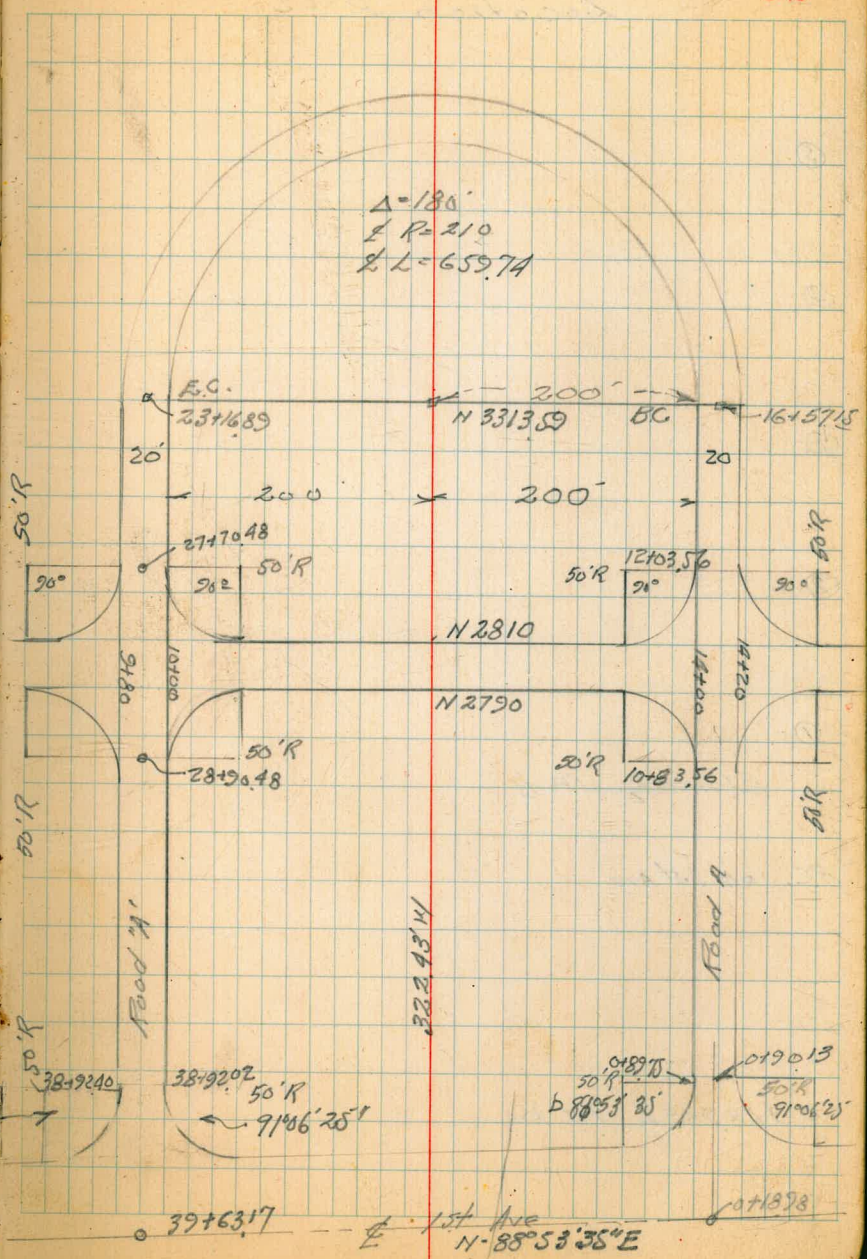 Δ=180°
℄ R=210
℄ L=659.74
E.C.
200'
23+16.89
N 3313.59
BC
16+57.15
20'
20
200
200'
50'R
50'R
27+70.48
50'R
50'R
12+03.56
90°
90°
90°
90°
N 2810
9+80
10+00
14+00
14+20
N 2790
50'R
50'R
28+90.48
10+83.56
50'R
50'R
Road "A"
Road A
50'R
38+92.40
38+92.02
50'R
91°06'25"
0+89.75
50'R
53' 35"
0+90.13
50'R
91°06'25"
0+18.98
39+63.17
℄ 1st Ave
N-88°53'35"E